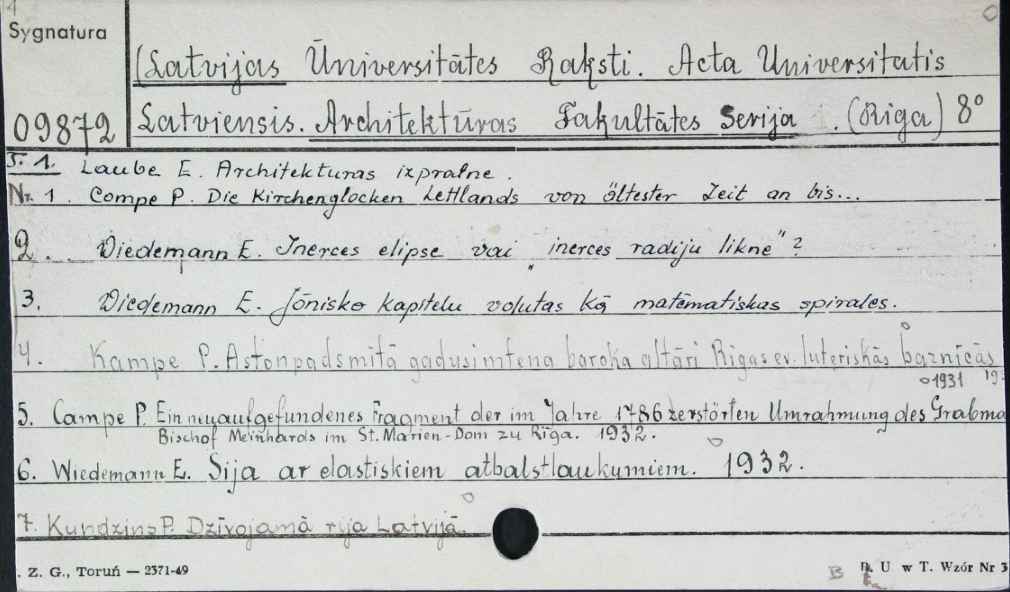 Sygnatura
09872
(Latvijas Ūniversitātes Raksti. Acta Universitatis
Latviensis. Architektūras Fakultātes Serija. (Riga) 8°
T. 1. Laube E. Architekturas izpratne.
Nr. 1. Compe P. Die Kirchenglocken Lettlands von ältester Zeit an bis...
2. Wiedemann E. Inerces elipse vai „inerces radiju likne"?
3. Wiedemann E. Jōnisko kapitelu volutas kā matēmatiskas spirales.
4. Kampe P. Astoņpadsmitā gadusimteņa baroka altāri Rigas ev. luteriskās baznīcās
1931 19
5. Campe P. Ein neuaufgefundenes Fragment der im Jahre 1786 zerstörten Umrahmung des Grabma
Bischof Meinhards im St. Marien-Dom zu Rīga. 1932.
6. Wiedemann E. Sija ar elastiskiem atbalstlaukumiem. 1932.
7. Kundzinš P. Dzīvojamā rija Latvijā.
. Z. G., Toruń — 2371-49
B. U. w T. Wzór Nr 3